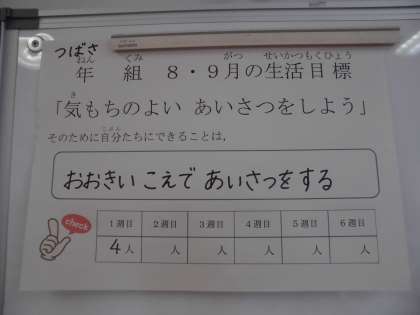 つばさ
年 組 8・9月の生活目標
「気もちのよい あいさつをしよう」
そのために自分たちにできることは,
おおきい こえで あいさつをする
check
1週目 2週目 3週目 4週目 5週目 6週目
4人 人 人 人 人 人